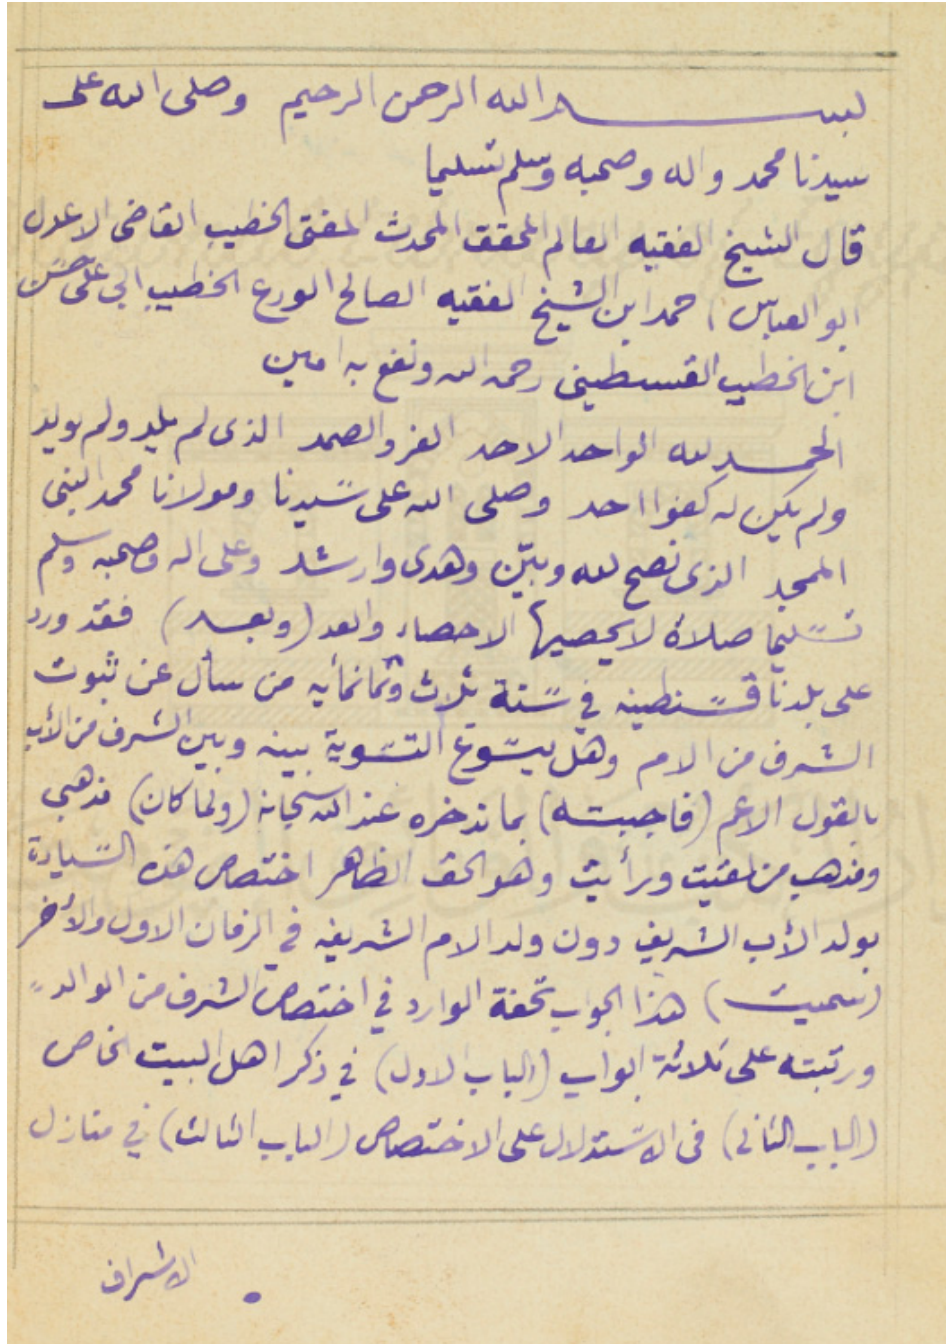 بسم الله الرحمن الرحيم وصلى الله على
سيدنا محمد واله وصحبه وسلم تسليما
قال الشيخ الفقيه العالم المحقق المحدث المفتى الخطيب القاضى الاعدل
ابو العباس احمد ابن الشيخ الفقيه الصالح الورع الخطيب ابى على حسن
ابن الخطيب القسطينى رحمه الله ونفع به امين
الحمد لله الواحد الاحد الفرد الصمد الذى لم يلد ولم يولد
ولم يكن له كفوا احد وصلى الله على سيدنا ومولانا محمد النبى
الممجد الذى نصح لله وبيّن وهدى وارشد وعلى اله وصحبه وسلم
تسليما صلاة لا يحصيها الاحصاء والعد (وبعد) فقد ورد
على بلدنا قسنطينه في سنة ثلاث وثمانمائه من سأل عن ثبوت
الشرف من الام وهل يسوغ التسوية بينه وبين الشرف من الأب
بالقول الاعم (فاجبته) بما ندخره عند الله سبحانه (ولما كان) مذهبى
ومذهب من لقيت ورأيت وهو الحق الظاهر اختصاص هذه السّيادة
بولد الأب الشريف دون ولد الام الشريفه في الزمان الاول والأخر
(سميت) هذا الجواب تحفة الوارد في اختصاص الشرف من الوالد
ورتبته على ثلاثة ابواب (الباب الاول) في ذكر اهل البيت الخاص
(الباب الثانى) فى الاستدلال على الاختصاص (الباب الثالث) في منازل
الاشراف